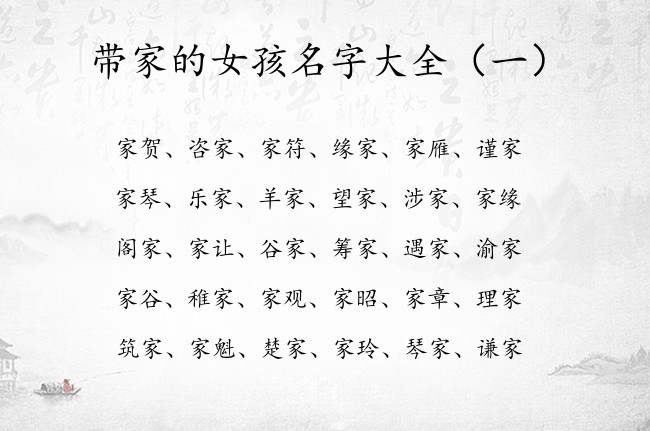 带家的女孩名字大全（一）
家贺、咨家、家符、缘家、家雁、谨家
家琴、乐家、羊家、望家、涉家、家缘
阁家、家让、谷家、筹家、遇家、渝家
家谷、稚家、家观、家昭、家章、理家
筑家、家魁、楚家、家玲、琴家、谦家